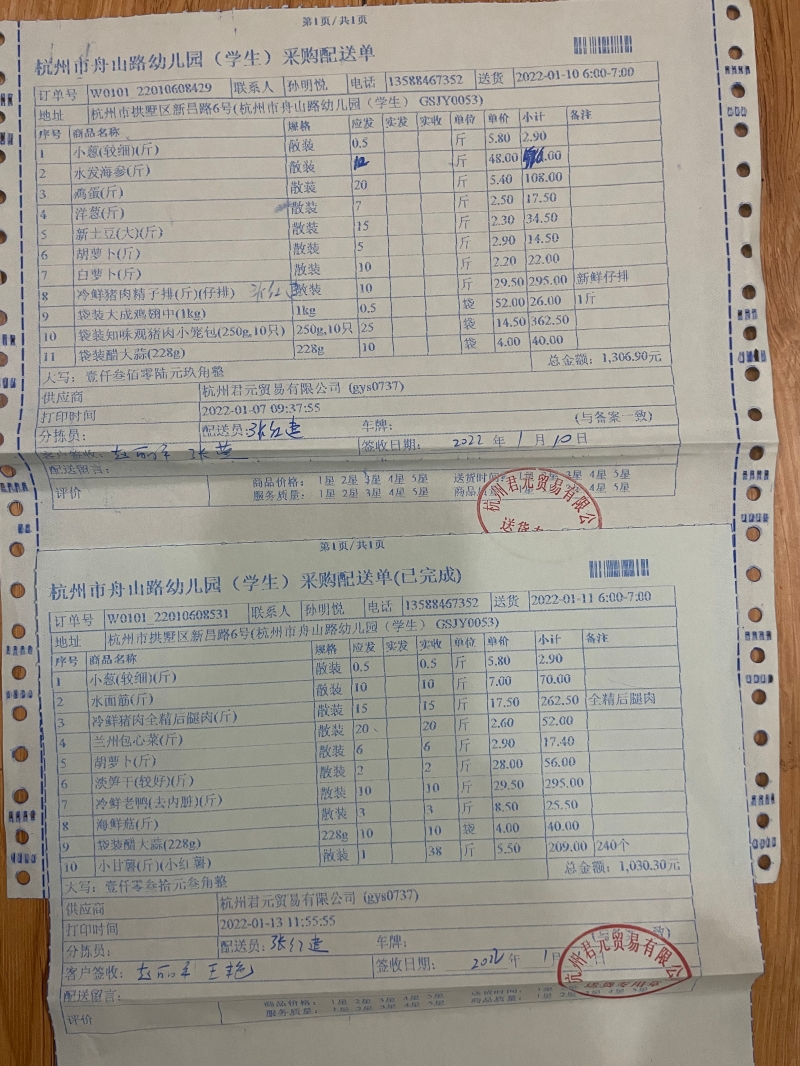 第1页/共1页
杭州市舟山路幼儿园（学生）采购配送单
订单号 W0101 22010608429 联系人 孙明悦 电话 13588467352 送货 2022-01-10 6:00-7:00
地址 杭州市拱墅区新昌路6号(杭州市舟山路幼儿园（学生） GSJY0053)
序号 商品名称 规格 应发 实发 实收 单位 单价 小计 备注
1 小葱(较细)(斤) 散装 0.5 斤 5.80 2.90
2 水发海参(斤) 散装 12 斤 48.00
3 鸡蛋(斤) 散装 20 斤 5.40 108.00
4 洋葱(斤) 散装 7 斤 2.50 17.50
5 新土豆(大)(斤) 散装 15 斤 2.30 34.50
6 胡萝卜(斤) 散装 5 斤 2.90 14.50
7 白萝卜(斤) 散装 10 斤 2.20 22.00
8 冷鲜猪肉精子排(斤)(仔排) 张红建 散装 10 斤 29.50 295.00 新鲜仔排
9 袋装大成鸡翅中(1kg) 1kg 0.5 袋 52.00 26.00 1斤
10 袋装知味观猪肉小笼包(250g,10只) 250g,10只 25 袋 14.50 362.50
11 袋装醋大蒜(228g) 228g 10 袋 4.00 40.00
大写：壹仟叁佰零陆元玖角整 总金额：1,306.90元
供应商 杭州君元贸易有限公司 (gys0737)
打印时间 2022-01-07 09:37:55
分拣员： 配送员：张红建 车牌： (与答案一致)
客户签收： 签收日期： 2022 年 1 月 10 日
配送留言：
评价 商品价格： 1星 2星 3星 4星 5星 送货时间： 1星 3星 4星 5星
服务质量： 1星 2星 3星 4星 5星 商品 4星 5星
杭州君元贸易有限公
送货专
第1页/共1页
杭州市舟山路幼儿园（学生）采购配送单(已完成)
订单号 W0101 22010608531 联系人 孙明悦 电话 13588467352 送货 2022-01-11 6:00-7:00
地址 杭州市拱墅区新昌路6号(杭州市舟山路幼儿园（学生） GSJY0053)
序号 商品名称 规格 应发 实发 实收 单位 单价 小计 备注
1 小葱(较细)(斤) 散装 0.5 0.5 斤 5.80 2.90
2 水面筋(斤) 散装 10 10 斤 7.00 70.00
3 冷鲜猪肉全精后腿肉(斤) 散装 15 15 斤 17.50 262.50 全精后腿肉
4 兰州包心菜(斤) 散装 20 20 斤 2.60 52.00
5 胡萝卜(斤) 散装 6 6 斤 2.90 17.40
6 淡笋干(较好)(斤) 散装 2 2 斤 28.00 56.00
7 冷鲜老鸭(去内脏)(斤) 散装 10 10 斤 29.50 295.00
8 海鲜菇(斤) 散装 3 3 斤 8.50 25.50
9 袋装醋大蒜(228g) 228g 10 10 袋 4.00 40.00
10 小甘薯(斤)(小红薯) 散装 1 38 斤 5.50 209.00 240个
大写：壹仟零叁拾元叁角整 总金额：1,030.30元
供应商 杭州君元贸易有限公司 (gys0737)
打印时间 2022-01-13 11:55:55
分拣员： 配送员：张红建 车牌： 致)
客户签收： 王艳 签收日期： 2022 年 1月
配送留言：
评价 商品价格： 1星 2星 3星 4星 5星 送货时间： 1星
服务质量： 1星 2星 3星 4星 5星 商品质量： 1星
杭州君元贸易有限公
送货专用章